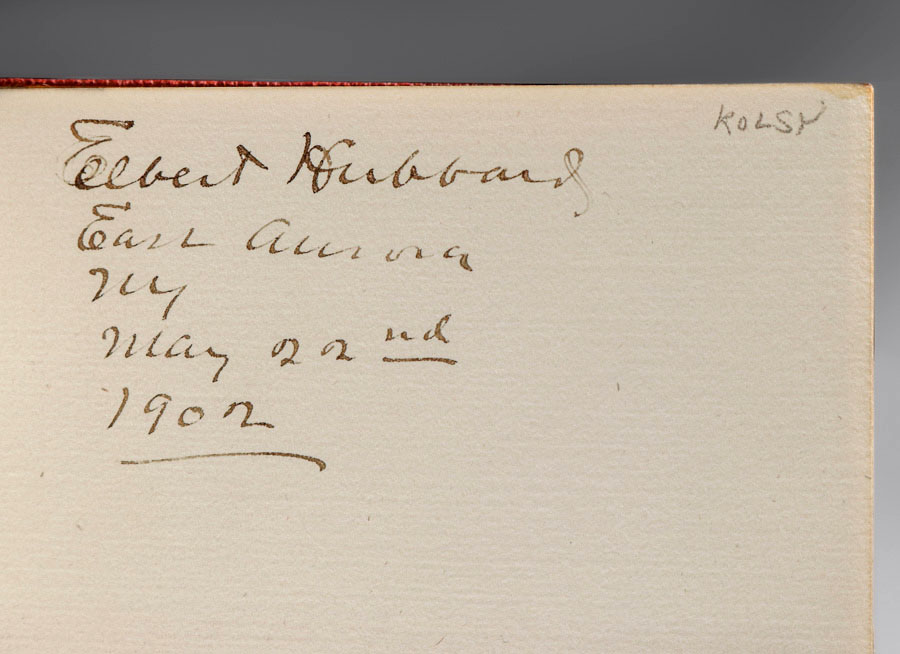 Elbert Hubbard
East Aurora
NY
May 22nd
1902